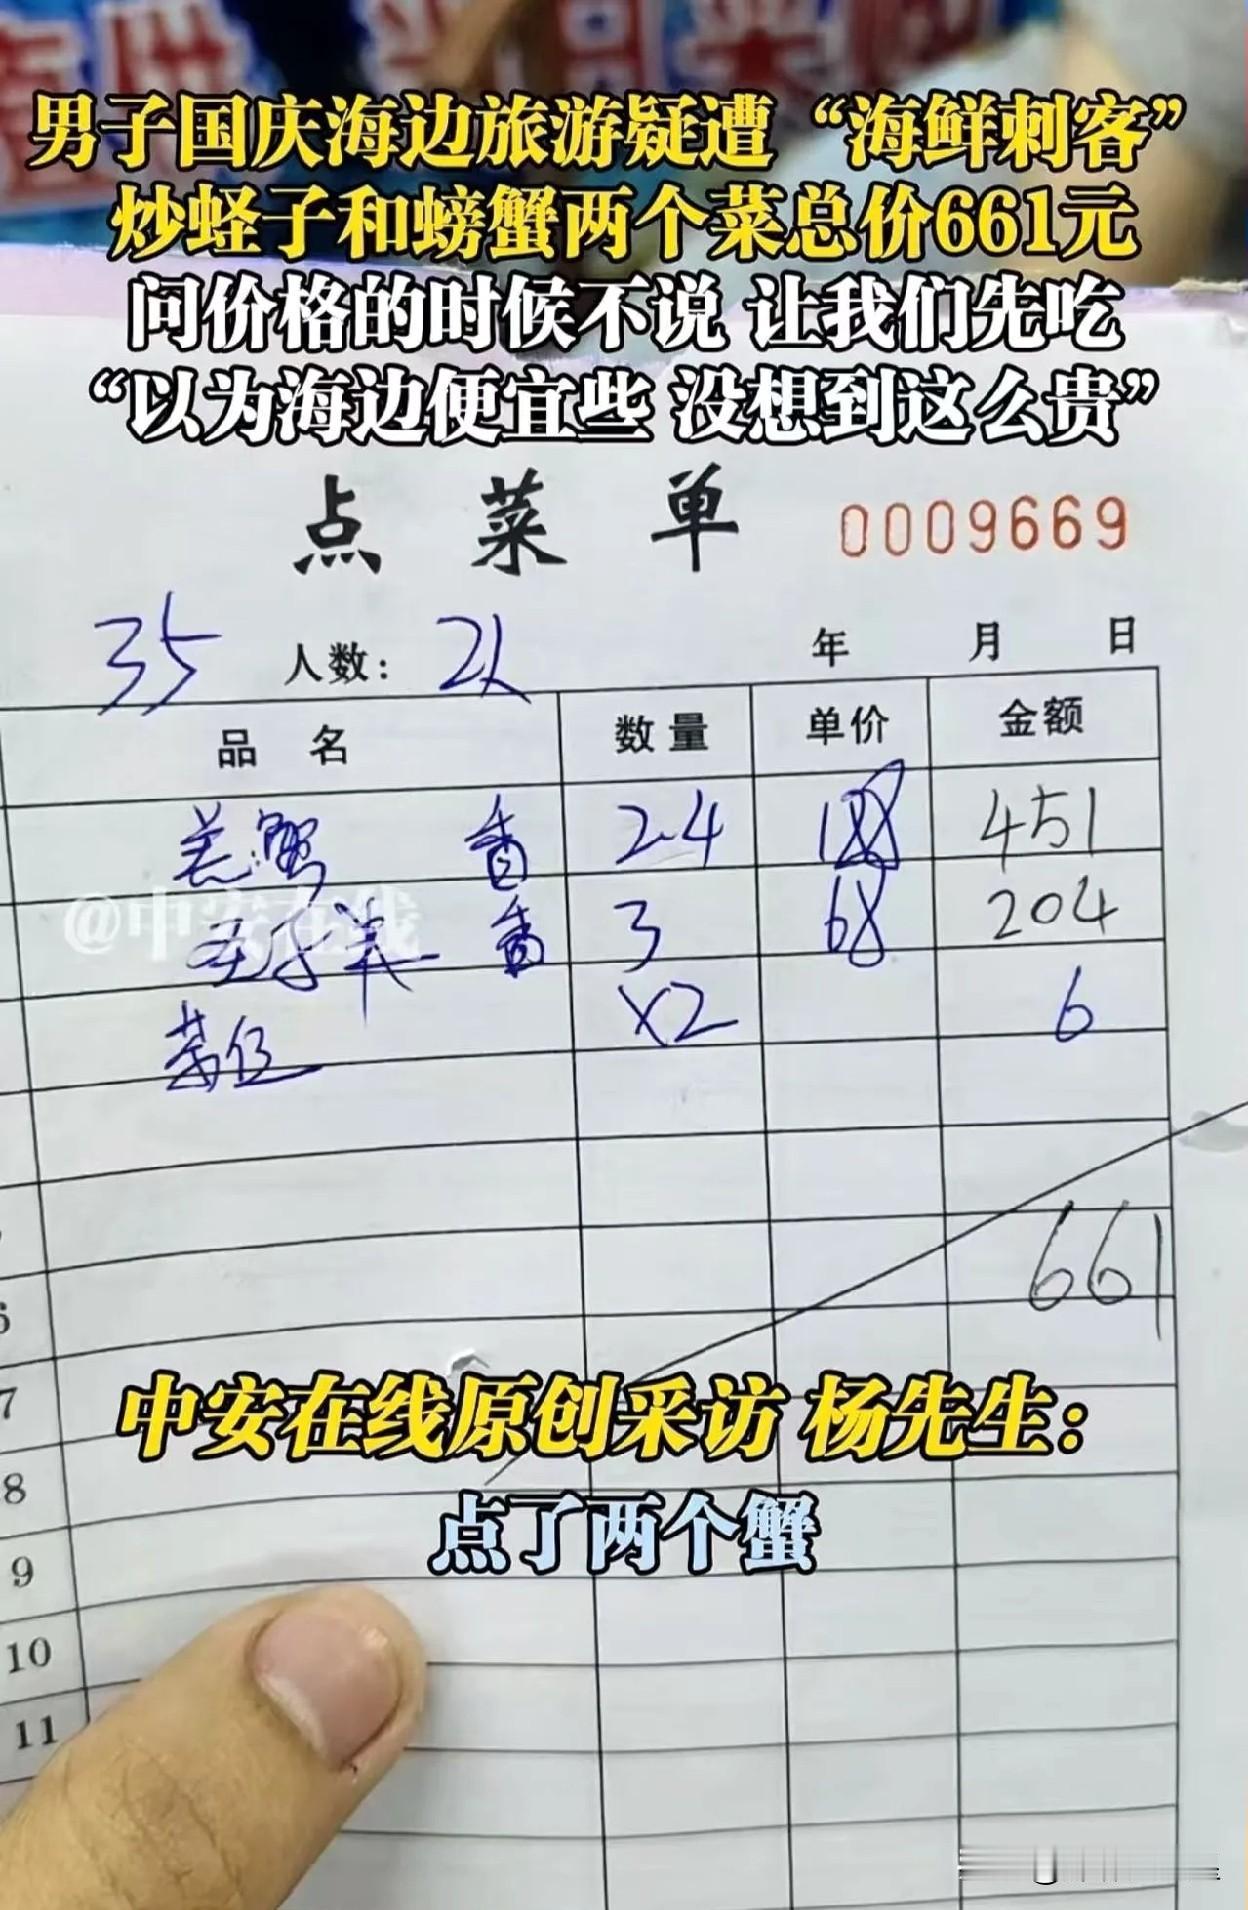 男子国庆海边旅游疑遭“海鲜刺客”
炒蛏子和螃蟹两个菜总价661元
问价格的时候不说 让我们先吃
“以为海边便宜些 没想到这么贵”
点菜单 0009669
35 人数: 2人
年 月 日
品名 数量 单价 金额
蟹 香 2.4 188 451
@中安在线
香 3 68 204
茶位 X2 6
661
6
7
中安在线原创采访 杨先生:
8
点了两个蟹
9
10
11